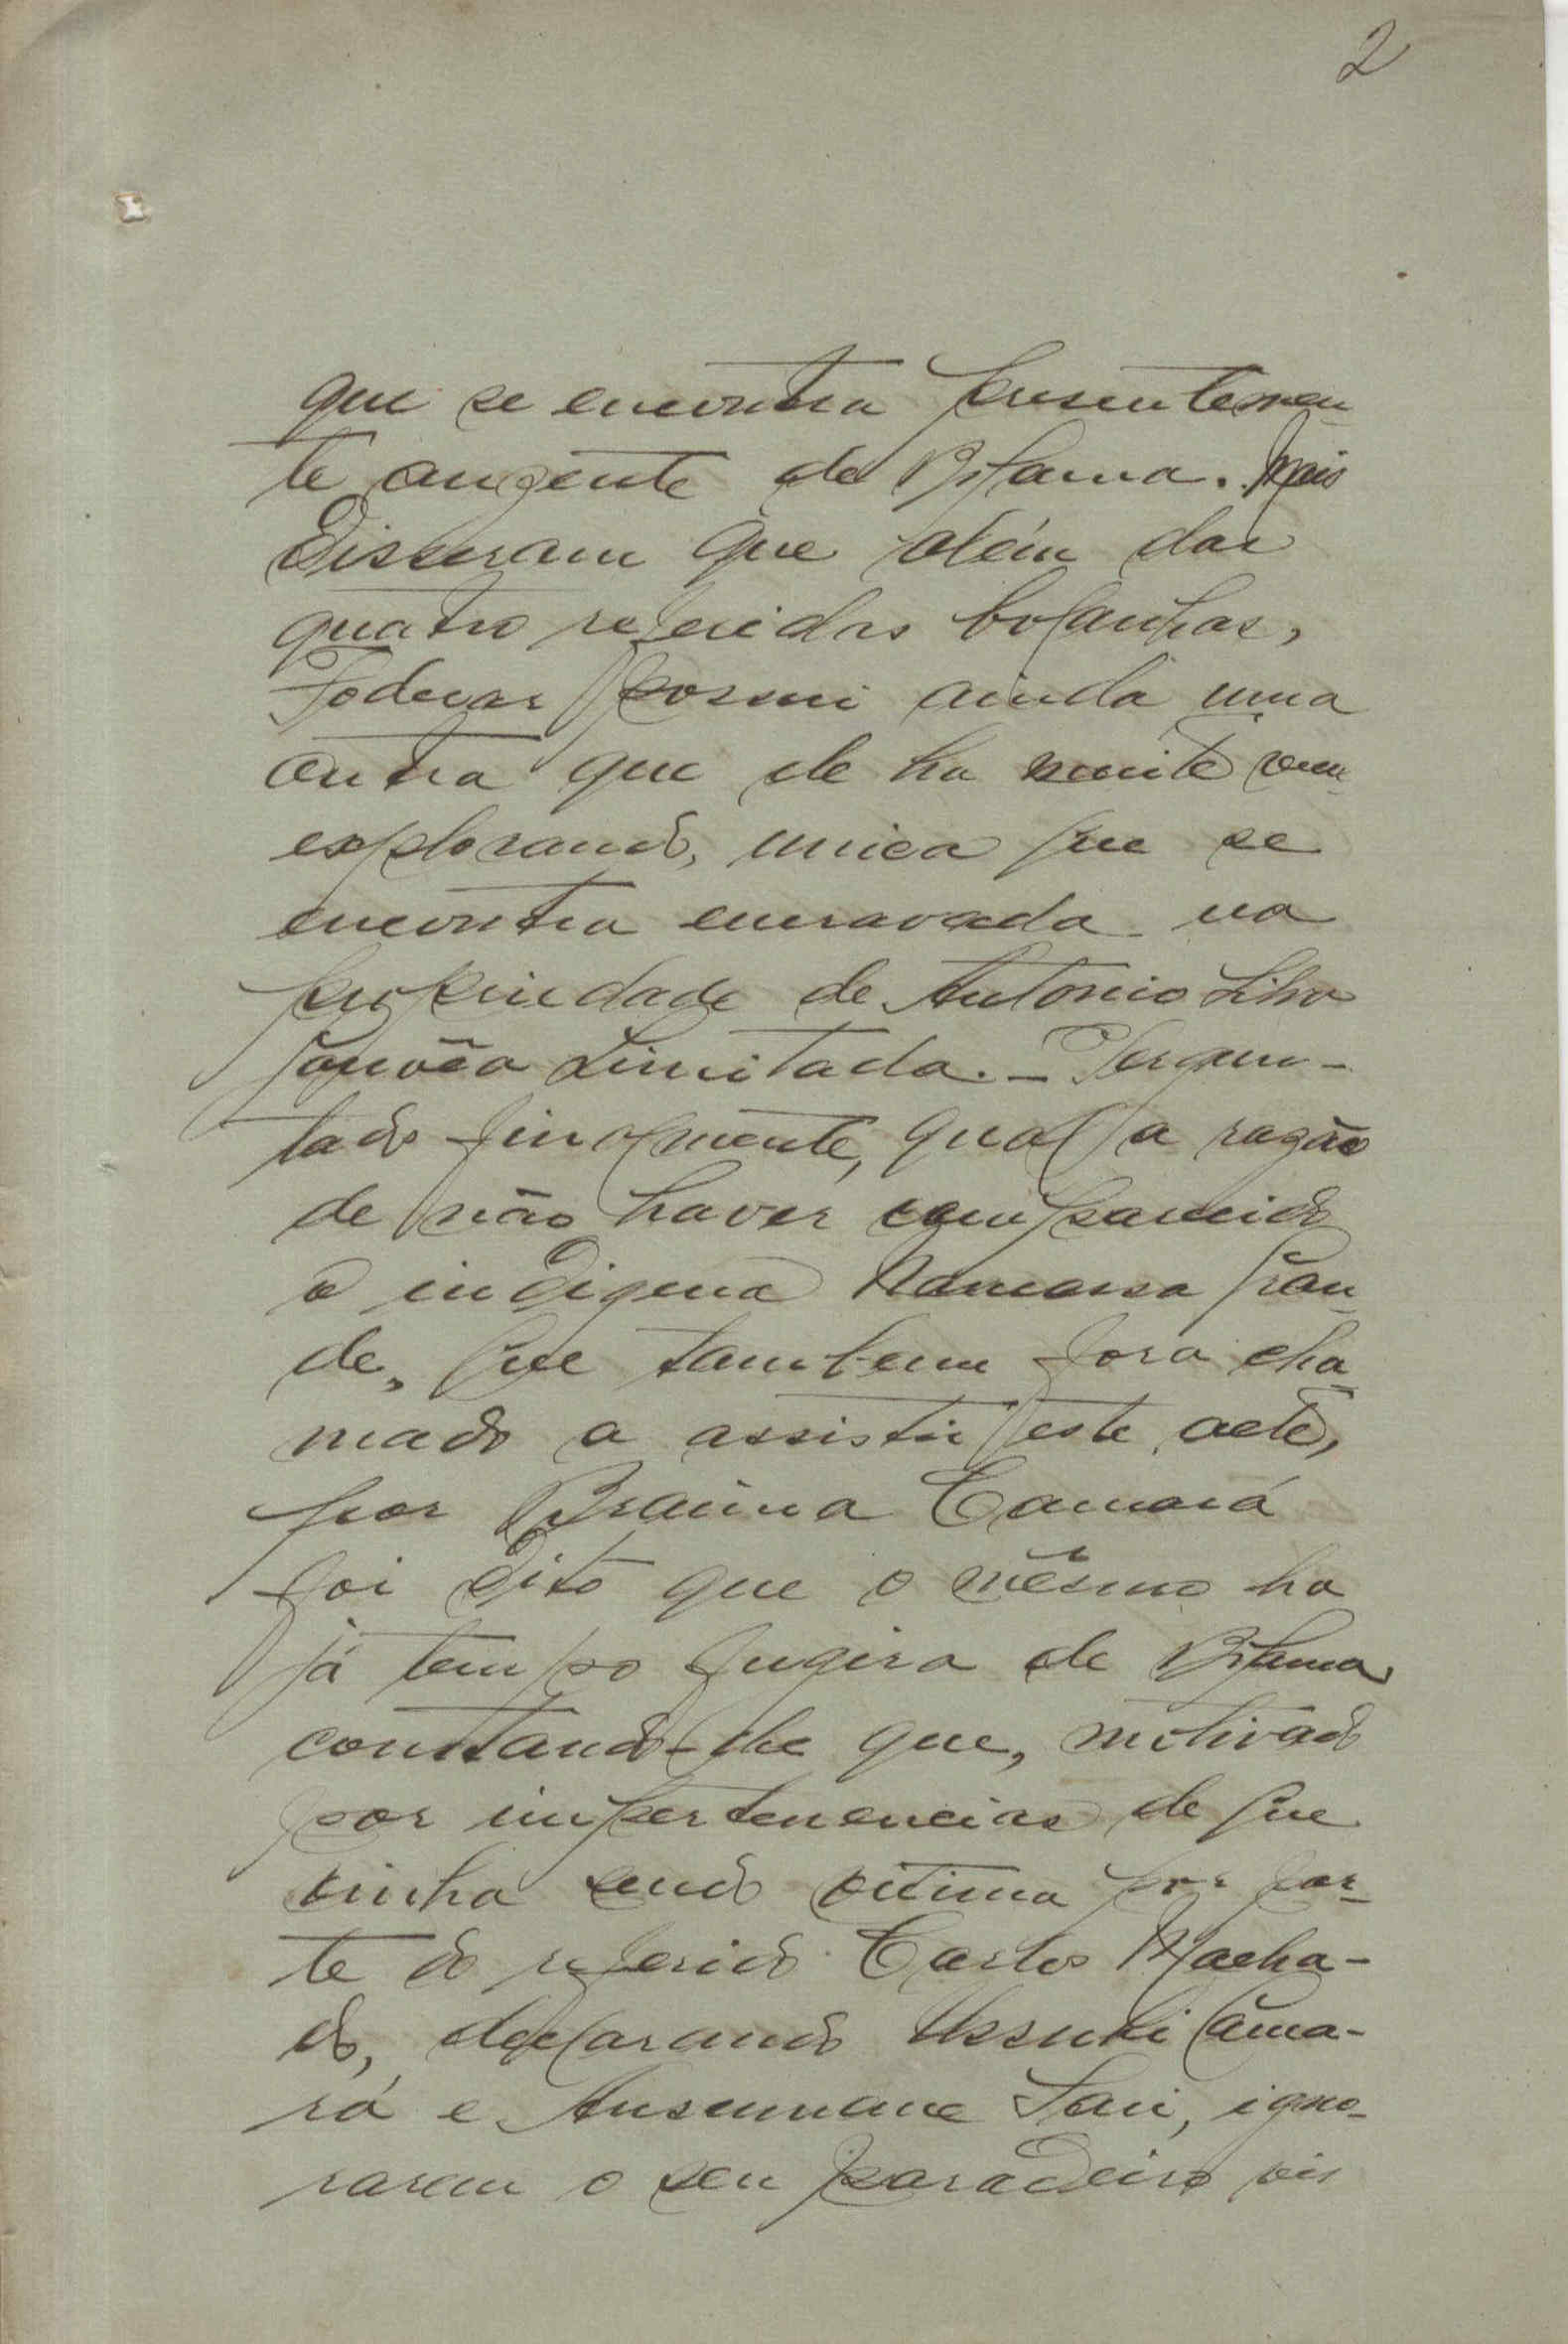 2
que se encontra presentemen-
te auzente de Bolama. Mais
disseram que além das
quatro referidas bolanhas,
Foderar possui ainda uma
outra que de ha muito vem
explorando, unica que se
encontra encravada na
propriedade de Antonio Silva
Gouvêa Limitada. - Pergun-
tado finalmente, qual a razão
de não haver comparecido
o indigena Mamassa Gran-
de, que tambem fora cha-
mado a assistir este acto,
por Braima Camará
foi dito que o mêsmo ha
já tempo fugira de Bolama
constando-lhe que, motivado
por impertenencias de que
vinha sendo vitima por par-
te do referido Carlos Macha-
do, declarando Ussubi Cama-
rá e Ansumane Sani, igno-
rarem o seu paradeiro